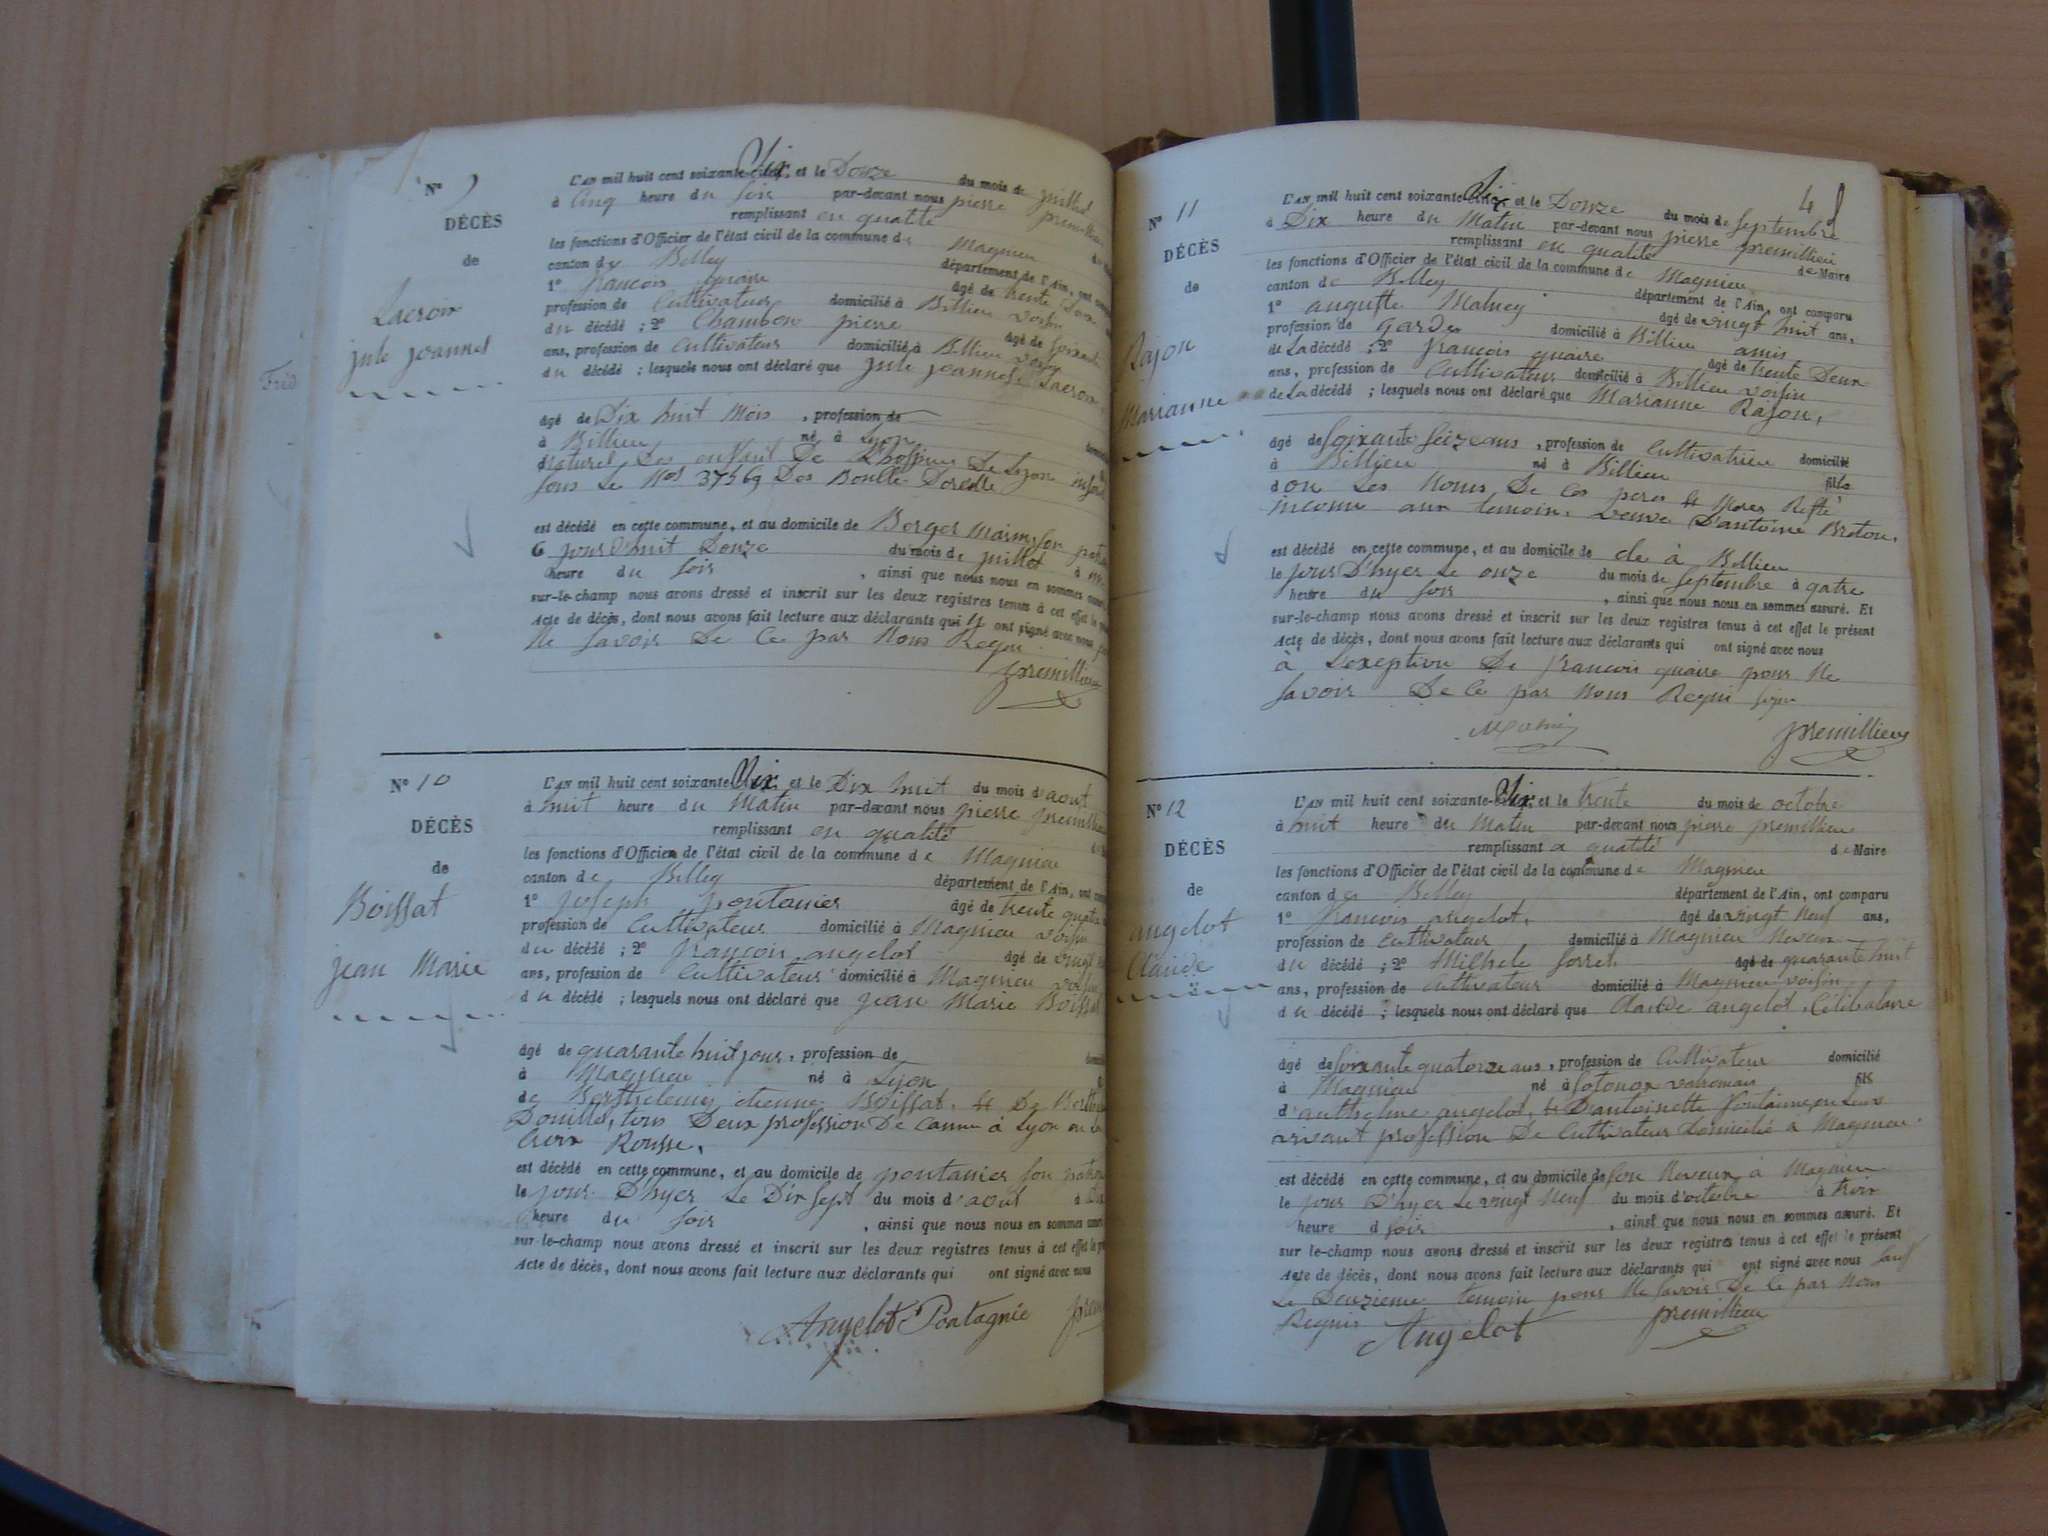 N° 9
DÉCÈS
de
Lacroix
jule joannes
L'AN mil huit cent soixante Six, et le Douze du mois de juillet
à cinq heure du soir par-devant nous pierre premillieu
remplissant en qualité
les fonctions d'Officier de l'état civil de la commune de Magnieu
canton de Belley département de l'Ain, ont
1° francois quaire âgé de trente
profession de Cultivateur domicilié à Billieu voisin
du décédé ; 2° Chambon pierre âgé de soixante
ans, profession de cultivateur domicilié à Billieu voisin
du décédé ; lesquels nous ont déclaré que jule joannes Lacroix
âgé de Dix huit Mois , profession de
à Billieu né à Lyon
naturel Des enfant De L'hospice De Lyon
sous Le Nos 37569 Des
est décédé en cette commune, et au domicile de Berger
jourd'huit Douze du mois de juillet à
heure du soir , ainsi que nous nous en sommes
sur-le-champ nous avons dressé et inscrit sur les deux registres tenus à cet effet le
Acte de décès, dont nous avons fait lecture aux déclarants qui n ont signé avec nous
Ne savoir De Ce par Nous Requi
premillieu
N° 10
DÉCÈS
de
Boissat
jean Marie
L'AN mil huit cent soixante Six, et le Dix huit du mois d'aout
à huit heure du Matin par-devant nous pierre premillieu
remplissant en qualité
les fonctions d'Officier de l'état civil de la commune de Magnieu
canton de Belley département de l'Ain, ont
1° joseph pontanier âgé de trente quatre
profession de Cultivateur domicilié à Magnieu voisin
du décédé ; 2° francois angelot âgé de vingt
ans, profession de cultivateur domicilié à Magnieu voisin
du décédé ; lesquels nous ont déclaré que jean Marie Boissat
âgé de quarante huit jour, profession de
à Magnieu né à Lyon
de Berthelemy etienne Boissat, et De
tous Deux profession De Canu à Lyon en La
Croix Rousse,
est décédé en cette commune, et au domicile de pontanier son
le jour D'hyer Le Dix sept du mois d'aout à
heure du soir , ainsi que nous nous en sommes
sur-le-champ nous avons dressé et inscrit sur les deux registres tenus à cet effet le
Acte de décès, dont nous avons fait lecture aux déclarants qui ont signé avec nous
Angelot Pontagnié
48
N° 11
DÉCÈS
de
Rajon
Marianne
L'AN mil huit cent soixante Six et le Douze du mois de septembre
à Dix heure du Matin par-devant nous pierre premillieu
remplissant en qualité de Maire
les fonctions d'Officier de l'état civil de la commune de Magnieu
canton de Belley département de l'Ain, ont comparu
1° auguste âgé de vingt huit ans,
profession de garde domicilié à Billieu amis
de La décédé ; 2° francois quaire âgé de trente Deux
ans, profession de Cultivateur domicilié à Billieu voisin
de La décédé ; lesquels nous ont déclaré que Marianne Rajon,
âgé de soixante seize ans , profession de Cultivatrice domicilié
à Billieu né à Billieu fille
d on Les Noms De Ces peres et Meres Resté
inconnu aux temoin. veuve D'antoine Breton,
est décédé en cette commune, et au domicile de de à Billieu
le jour D'hyer Le onze du mois de septembre à qatre
heure du soir , ainsi que nous nous en sommes assuré. Et
sur-le-champ nous avons dressé et inscrit sur les deux registres tenus à cet effet le présent
Acte de décès, dont nous avons fait lecture aux déclarants qui ont signé avec nous
à L'exeption De francois quaire pour Ne
savoir De Ce par Nous Requi
premillieu
N° 12
DÉCÈS
de
angelot
Claude
L'AN mil huit cent soixante-Six et le trente du mois de octobre
à huit heure du Matin par-devant nous pierre premillieu
remplissant a qualité de Maire
les fonctions d'Officier de l'état civil de la commune de Magnieu
canton de Belley département de l'Ain, ont comparu
1° francois angelot, âgé de vingt Neuf ans,
profession de cultivateur domicilié à Magnieu Neveux
du décédé ; 2° Michele âgé de quarante huit
ans, profession de cultivateur domicilié à Magnieu voisin
du décédé ; lesquels nous ont déclaré que Claude angelot, Célibataire
âgé de soixante quatorze ans, profession de Cultivateur domicilié
à Magnieu né à fils
d'anthelme angelot, et D'antoinette fontaine, en Leurs
vivant profession De Cultivateur Domicilié a Magnieu.
est décédé en cette commune, et au domicile de son Neveux à Magnieu
le jour D'hyer Le vingt Neuf du mois d'octobre à trois
heure d soir , ainsi que nous nous en sommes assuré. Et
sur le-champ nous avons dressé et inscrit sur les deux registres tenus à cet effet le présent
Acte de décès, dont nous avons fait lecture aux déclarants qui ont signé avec nous sauf
Le Deuzieme temoin pour Ne savoir De Ce par Nous
Requis
Angelot premillieu